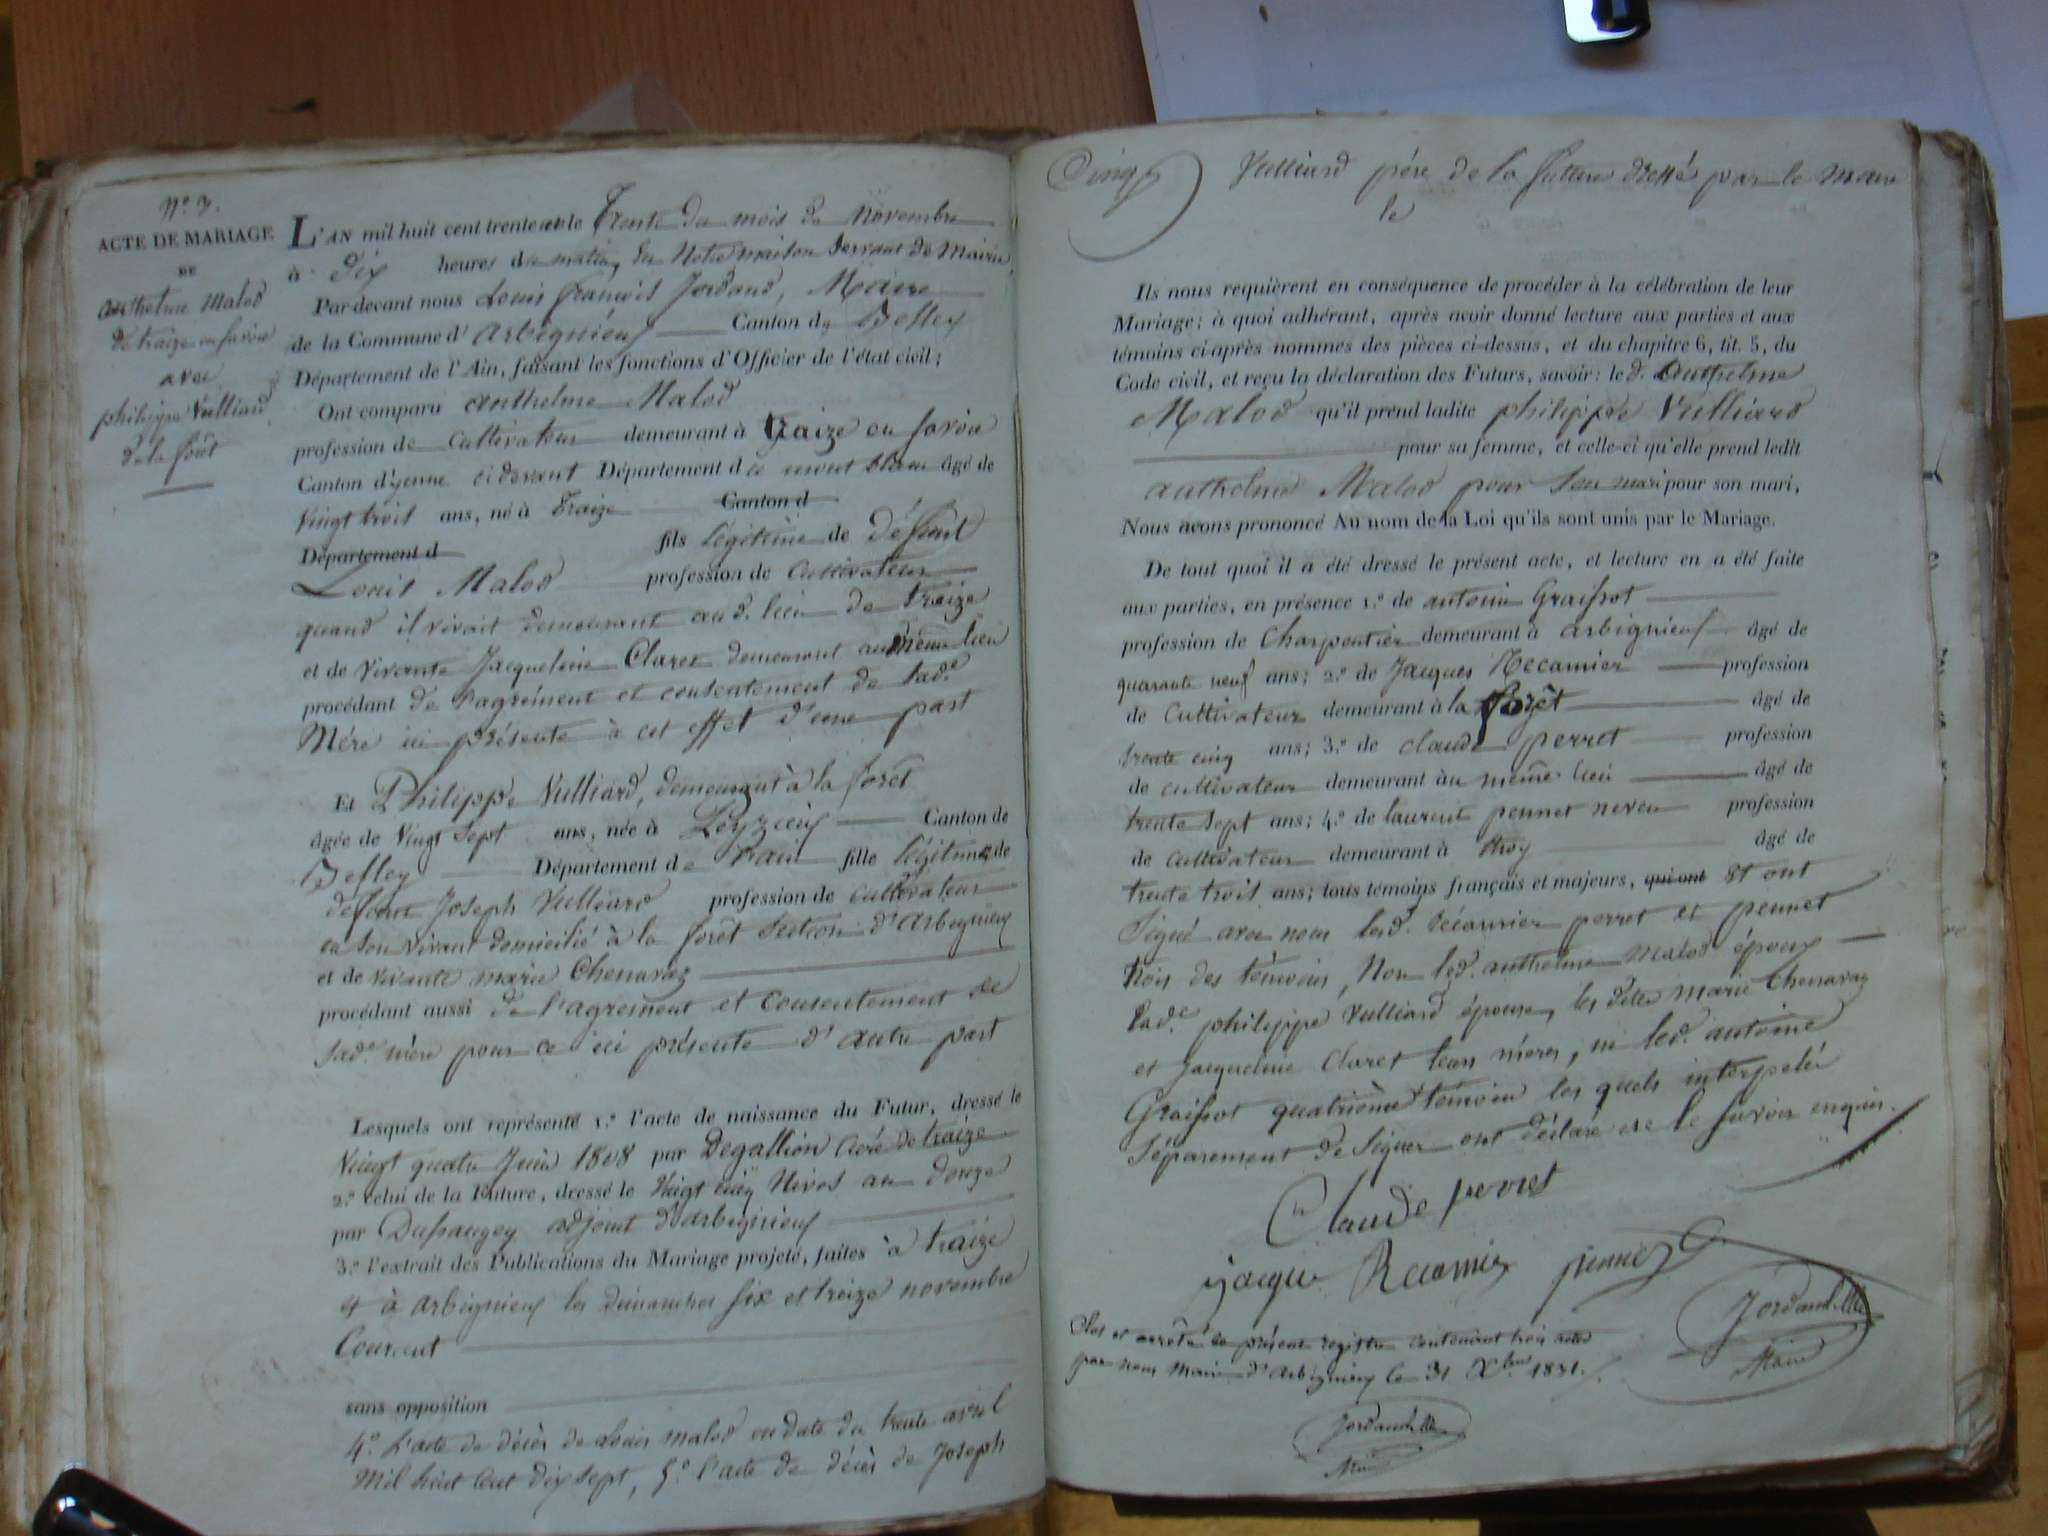 N.º 3.
ACTE DE MARIAGE
DE
anthelme Malod
de traize en savoie
avec
philippe Vulliard
de la forêt
L'AN mil huit cent trente et le Trente du mois de Novembre
à dix heures du matin, En Notre maison Servant de Mairie,
Par-devant nous Louis françois Jordand, Maire
de la Commune d'arbignieu Canton de Belley
Département de l'Ain, faisant les fonctions d'Officier de l'état civil;
Ont comparu anthelme Malod
profession de Cultivateur demeurant à Traize en savoie
Canton d'yenne cidevant Département du mont blanc âgé de
Vingt trois ans, né à Traize Canton d
Département d fils légitime de défunt
Louis Malod profession de Cultivateur
quand il vivait demeurant aud. lieu de traize
et de vivante Jacqueline Claret demeurant au même lieu
procédant de l'agrément et consentement de lad.e
Mère ici présente à cet effet d'une part
Et Philippe Vulliard, demeurant à la forêt
âgée de Vingt Sept ans, née à Peyzieu Canton de
Belley Département de l'ain fille légitime de
défunt Joseph Vulliard profession de cultivateur
en son vivant domicilié à la forêt Section d'Arbignieu
et de vivante marie Chenavaz
procédant aussi de l'agrément et consentement de
sad.e mère pour ce ici présente d'autre part
Lesquels ont représenté 1.º l'acte de naissance du Futur, dressé le
Vingt quatre Juin 1808 par Degallion Curé de traize
2.º celui de la Future, dressé le Vingt cinq Nivos an douze
par Dussaugey adjoint d'arbignieu
3.º l'extrait des Publications du Mariage projeté, faites à traize
et à arbignieu les dimanches six et treize novembre
Courant
sans opposition
4.º L'acte de décès de Louis malod en date du trente avril
Mil huit Cent dix sept, 5.º l'acte de décès de Joseph
Cinq
Vulliard père de la future dressé par le Maire
le
Ils nous requièrent en conséquence de procéder à la célébration de leur
Mariage; à quoi adhérant, après avoir donné lecture aux parties et aux
témoins ci-après nommés des pièces ci-dessus, et du chapitre 6, tit. 5, du
Code civil, et reçu la déclaration des Futurs, savoir: le d. Anthelme
Malod qu'il prend ladite philippe Vulliard
pour sa femme, et celle-ci qu'elle prend ledit
anthelme Malod pour Son mari pour son mari,
Nous avons prononcé Au nom de la Loi qu'ils sont unis par le Mariage.
De tout quoi il a été dressé le présent acte, et lecture en a été faite
aux parties, en présence 1.º de antoine Graissot
profession de Charpentier demeurant à arbignieu âgé de
quarante neuf ans; 2.º de Jacques Recamier profession
de Cultivateur demeurant à la forêt âgé de
trente cinq ans; 3.º de claude perret profession
de cultivateur demeurant au même lieu âgé de
trente sept ans; 4.º de laurent pennet neveu profession
de Cultivateur demeurant à thoy âgé de
trente trois ans; tous témoins français et majeurs, qui ont Et ont
Signé avec nous lesd. Récamier perret et pennet
trois des témoins, Non led. anthelme malod époux
lad.e philippe Vulliard épouse, les dites marie Chenavaz
et Jacqueline Claret leurs mères, ni led. antoine
Graissot quatrième témoin les quels interpelés
Séparement de Signer ont déclaré ne le savoir enquis.
Claude perret
jaque Recamier pennet
Jordand
Maire
Clos et arrêté le présent registre contenant trois actes
par nous Maire d'Arbignieu le 31 X.bre 1831.
Jordand
Maire